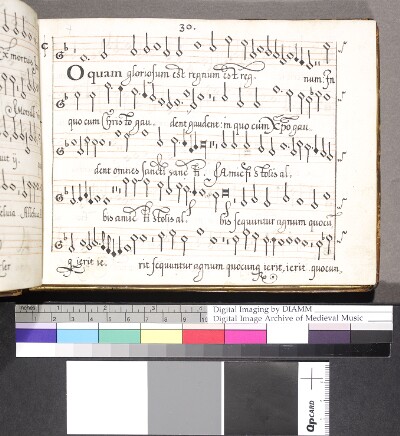 30.
O quam gloriosum est regnum est reg. num. In
quo cum Christo gau. dent gaudent: in quo cum Xpo gau.
dent omnes sancti sanc ti. Amicti stolis al.
bis amic ti stolis al. bis sequuntur agnum quocu
q ierit ie. rit sequuntur agnum quocunq ierit, ierit. quocun,
Digital Imaging by DIAMM
Digital Image Archive of Medieval Music
inches
cm
QPCARD